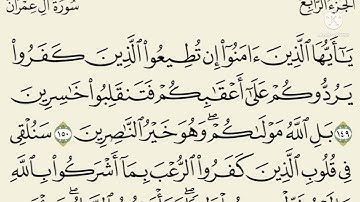 الجزء الرابع سورة آل عمران
يَٰٓأَيُّهَا ٱلَّذِينَ ءَامَنُوٓا۟ إِن تُطِيعُوا۟ ٱلَّذِينَ كَفَرُوا۟
يَرُدُّوكُمْ عَلَىٰٓ أَعْقَٰبِكُمْ فَتَنقَلِبُوا۟ خَٰسِرِينَ
١٤٩ بَلِ ٱللَّهُ مَوْلَىٰكُمْ ۖ وَهُوَ خَيْرُ ٱلنَّٰصِرِينَ ١٥٠ سَنُلْقِى
فِى قُلُوبِ ٱلَّذِينَ كَفَرُوا۟ ٱلرُّعْبَ بِمَآ أَشْرَكُوا۟ بِٱللَّهِ